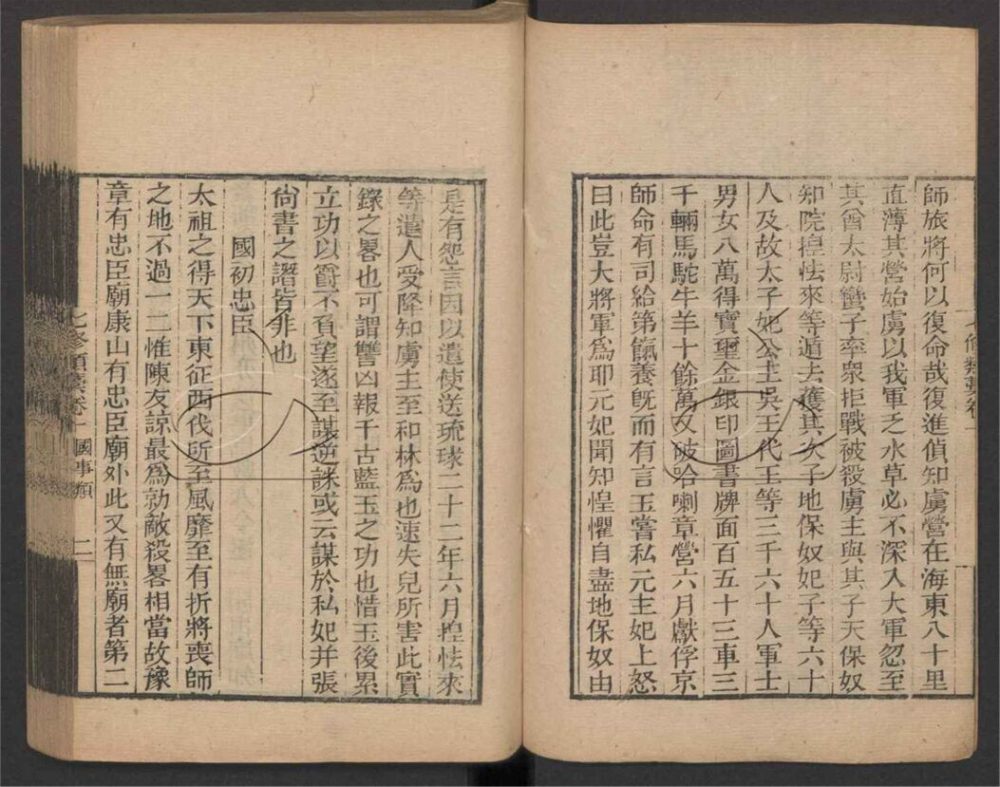 師旅將何以復命哉復進偵知虜營在海東八十里
直薄其營始虜以我軍乏水草必不深入大軍忽至
其酋太尉蠻子率衆拒戰被殺虜主與其子天保奴
知院揑怯來等遁去獲其次子地保奴妃子等六十
人及故太子妃公主吳王代王等三千六十人軍士
男女八萬得寶璽金銀印圖書牌面百五十三車三
千輛馬駝牛羊十餘萬又破哈喇章營六月獻俘京
師命有司給第餼養旣而有言玉嘗私元主妃上怒
曰此豈大將軍爲耶元妃聞知惶懼自盡地保奴由
是有怨言因以遣使送琉球二十二年六月揑怯來
等遣人受降知虜主至和林爲也速失兒所害此實
錄之畧也可謂讐凶報千古藍玉之功也惜玉後累
立功以爵不負望遂至謀逆誅或云謀於私妃并張
尙書之譖皆非也
國初忠臣
太祖之得天下東征西伐所至風靡至有折將喪師
之地不過一二惟陳友諒最爲勍敵殺畧相當故豫
章有忠臣廟康山有忠臣廟外此又有無廟者第二
七修類藁卷一 國事類 二